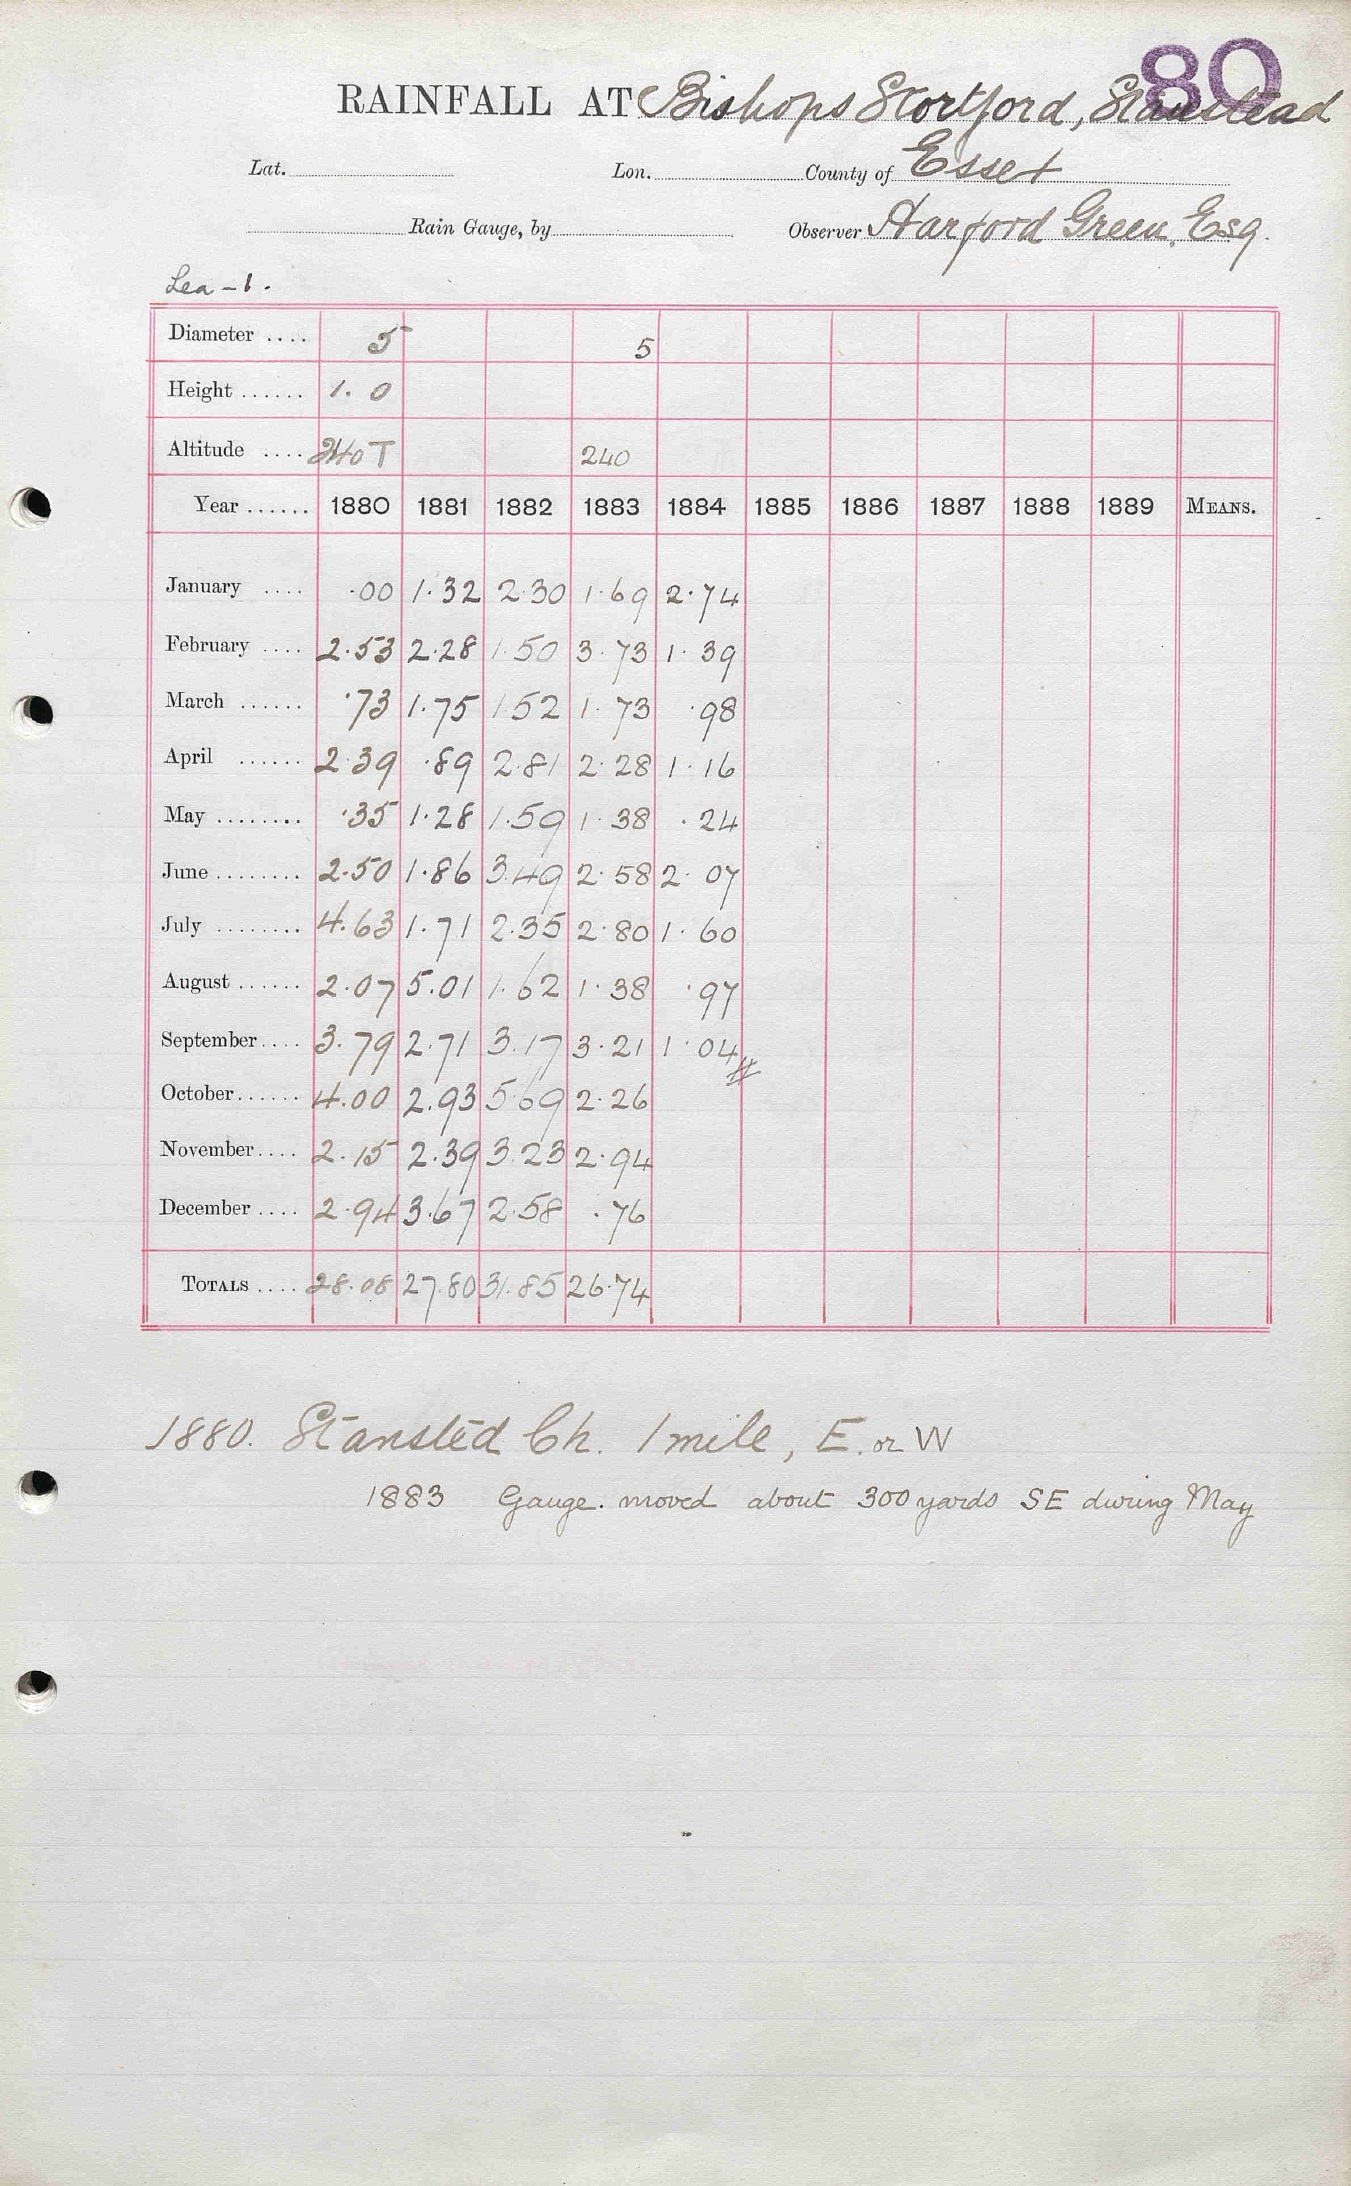 80
RAINFALL AT Bishops Stortford, Stanstead
Lat. Lon. County of Essex
Rain Gauge, by Observer Harford Green, Esq.
Lea - 1.
Diameter .... 5 5
Height ...... 1. 0
Altitude .... 240 T 240
Year ...... 1880 1881 1882 1883 1884 1885 1886 1887 1888 1889 MEANS.
January .... .00 1.32 2.30 1.69 2.74
February .... 2.53 2.28 1.50 3.73 1.39
March ...... .73 1.75 1.52 1.73 .98
April ...... 2.39 .89 2.81 2.28 1.16
May ........ .35 1.28 1.59 1.38 .24
June ........ 2.50 1.86 3.49 2.58 2.07
July ........ 4.63 1.71 2.35 2.80 1.60
August ...... 2.07 5.01 1.62 1.38 .97
September .... 3.79 2.71 3.17 3.21 1.04
October ...... 4.00 2.93 5.69 2.26
November .... 2.15 2.39 3.23 2.94
December .... 2.94 3.67 2.58 .76
TOTALS .... 28.08 27.80 31.85 26.74
1880. Stansted Ch. 1 mile, E. or W
1883 Gauge. moved about 300 yards SE during May